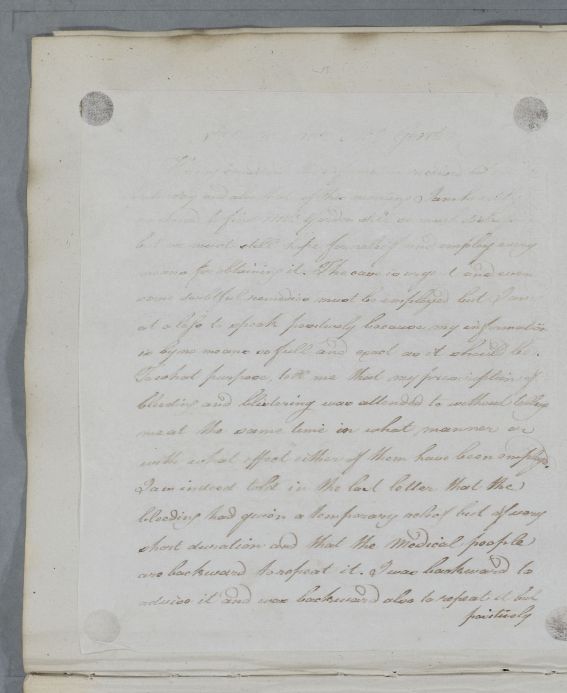 information
and also that of this morning I am heartily
to find Mrs Gordon still so much
but we must still hope for relief and employ every
means for obtaining it. The case is urgent and even
some doubtful remedies must be employed but I am
at a loss to speak positively because my information
is by no means so full and exact as it should be.
To what purpose, tell me that my prescription of
bleeding and blistering was attended to without telling
me at the same time in what manner or
with what effect either of them have been employed.
I am indeed told in the last letter that the
bleeding had given a temporary relief but of very
short duration and that the Medical people
are backward to repeat it. I was backward to
advise it and was backward also to repeat it but
positively